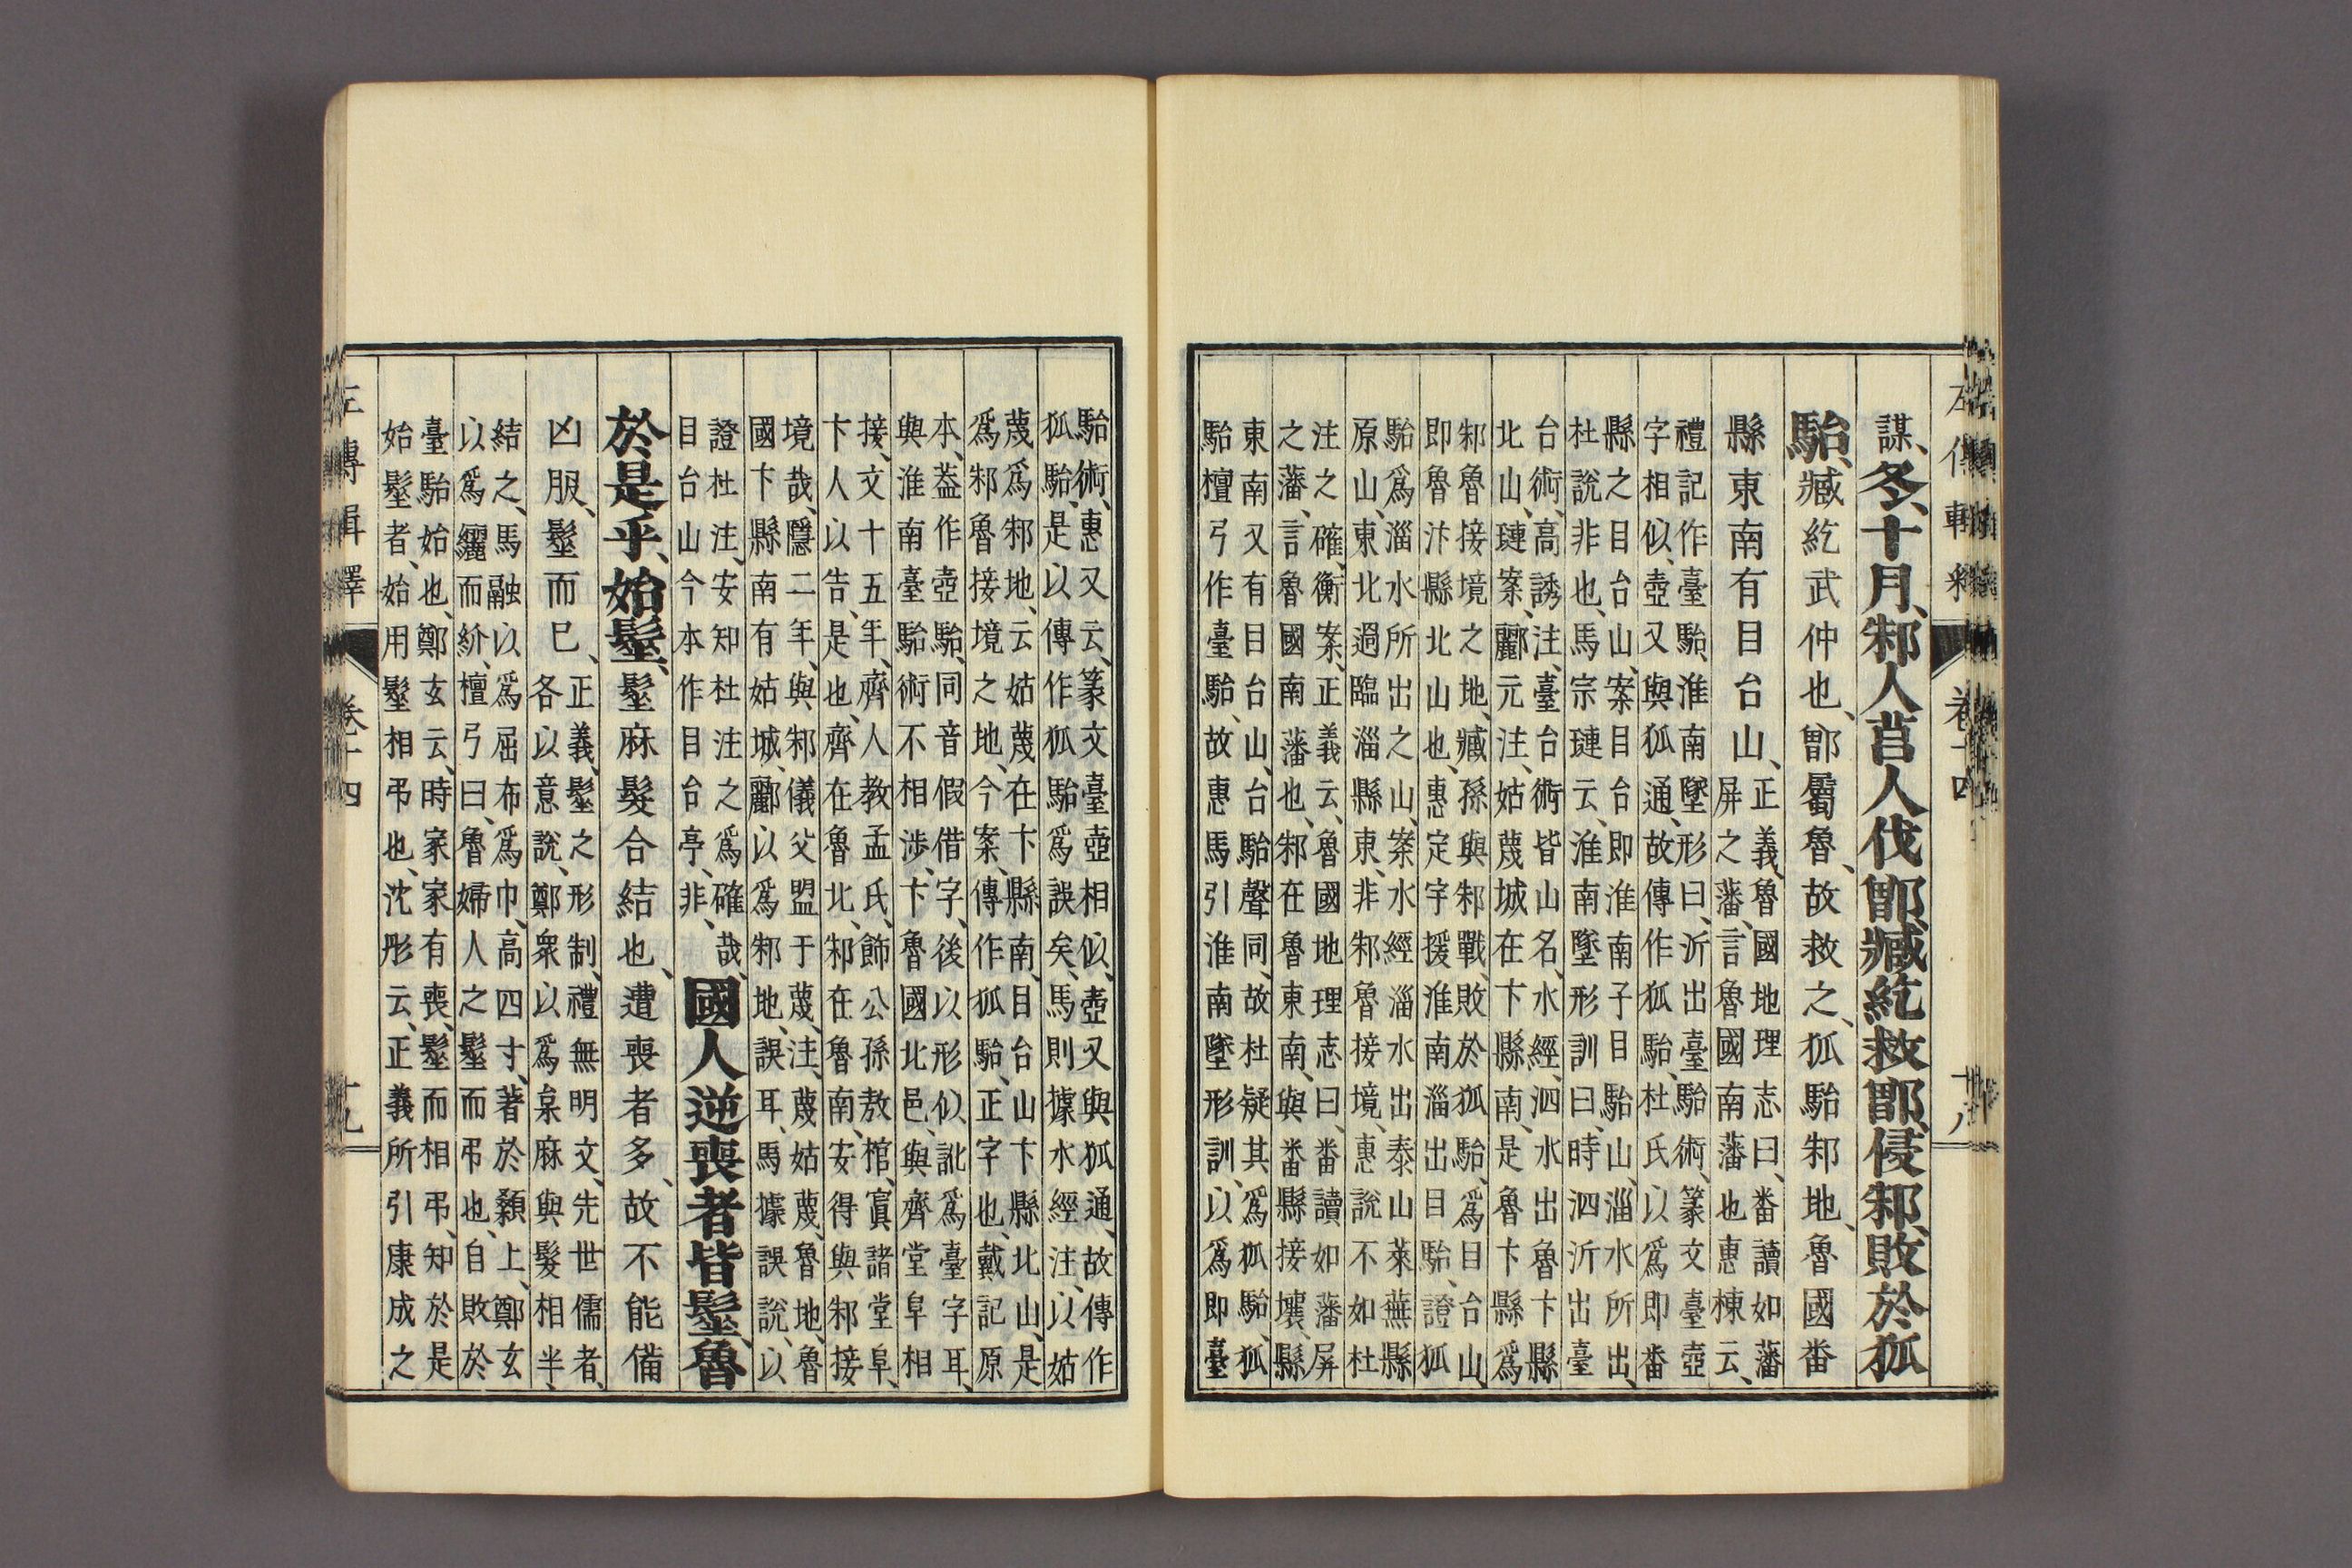 謀、冬、十月、邾人莒人伐鄫、臧紇救鄫、侵邾、敗於狐
駘、臧紇武仲也、鄫屬魯、故救之、狐駘邾地、魯國番
縣東南有目台山、
正義、魯國地理志曰、番讀如藩
屏之藩、言魯國南藩也、惠棟云、
禮記作臺駘、淮南墜形曰、沂出臺駘術、篆文臺壺
字相似、壺又與狐通、故傳作狐駘、杜氏以爲卽番
縣之目台山、案目台卽淮南子目駘山、淄水所出、
杜說非也、馬宗璉云、淮南墜形訓曰、時泗沂出臺
台術、高誘注、臺台術皆山名、水經、泗水出魯卞縣
北山、璉案、酈元注、姑蔑城在卞縣南、是魯卞縣爲
邾魯接境之地、臧孫與邾戰、敗於狐駘、爲目台山、
卽魯汴縣北山也、惠定宇援淮南淄出目駘、證狐
駘爲淄水所出之山、案水經淄水出泰山萊蕪縣
原山、東北過臨淄縣東、非邾魯接境、惠說不如杜
注之確、衡案、正義云、魯國地理志曰、番讀如藩屏
之藩、言魯國南藩也、邾在魯東南、與番縣接壤、縣
東南又有目台山、台駘聲同、故杜疑其爲狐駘、狐
駘檀弓作臺駘、故惠馬引淮南墜形訓、以爲卽臺
駘術、惠又云、篆文臺壺相似、壺又與狐通、故傳作
狐駘、是以傳作狐駘爲誤矣、馬則據水經注、以姑
蔑爲邾地、云姑蔑在卞縣南、目台山卞縣北山、是
爲邾魯接境之地、今案、傳作狐駘、正字也、戴記原
本、蓋作壺駘、同音假借字、後以形似、訛爲臺字耳、
與淮南臺駘術不相涉、卞魯國北邑、與齊堂阜相
接、文十五年、齊人敎孟氏、飾公孫敖棺、寘諸堂阜、
卞人以告、是也、齊在魯北、邾在魯南、安得與邾接
境哉、隱二年、與邾儀父盟于蔑、注、蔑姑蔑、魯地、魯
國卞縣南有姑城、酈以爲邾地、誤耳、馬據誤說、以
證杜注、安知杜注之爲確哉、
目台山今本作目台亭、非、
國人逆喪者皆髽、魯
於是乎、始髽、髽麻髮合結也、遭喪者多、故不能備
凶服、髽而已、
正義、髽之形制、禮無明文、先世儒者、
各以意說、鄭衆以爲枲麻與髮相半、
結之、馬融以爲屈布爲巾、高四寸、著於顙上、鄭玄
以爲纚而紒、檀弓曰、魯婦人之髽而弔也、自敗於
臺駘始也、鄭玄云、時家家有喪、髽而相弔、知於是
始髽者、始用髽相弔也、沈彤云、正義所引康成之
左傳輯釋　卷十四　十九